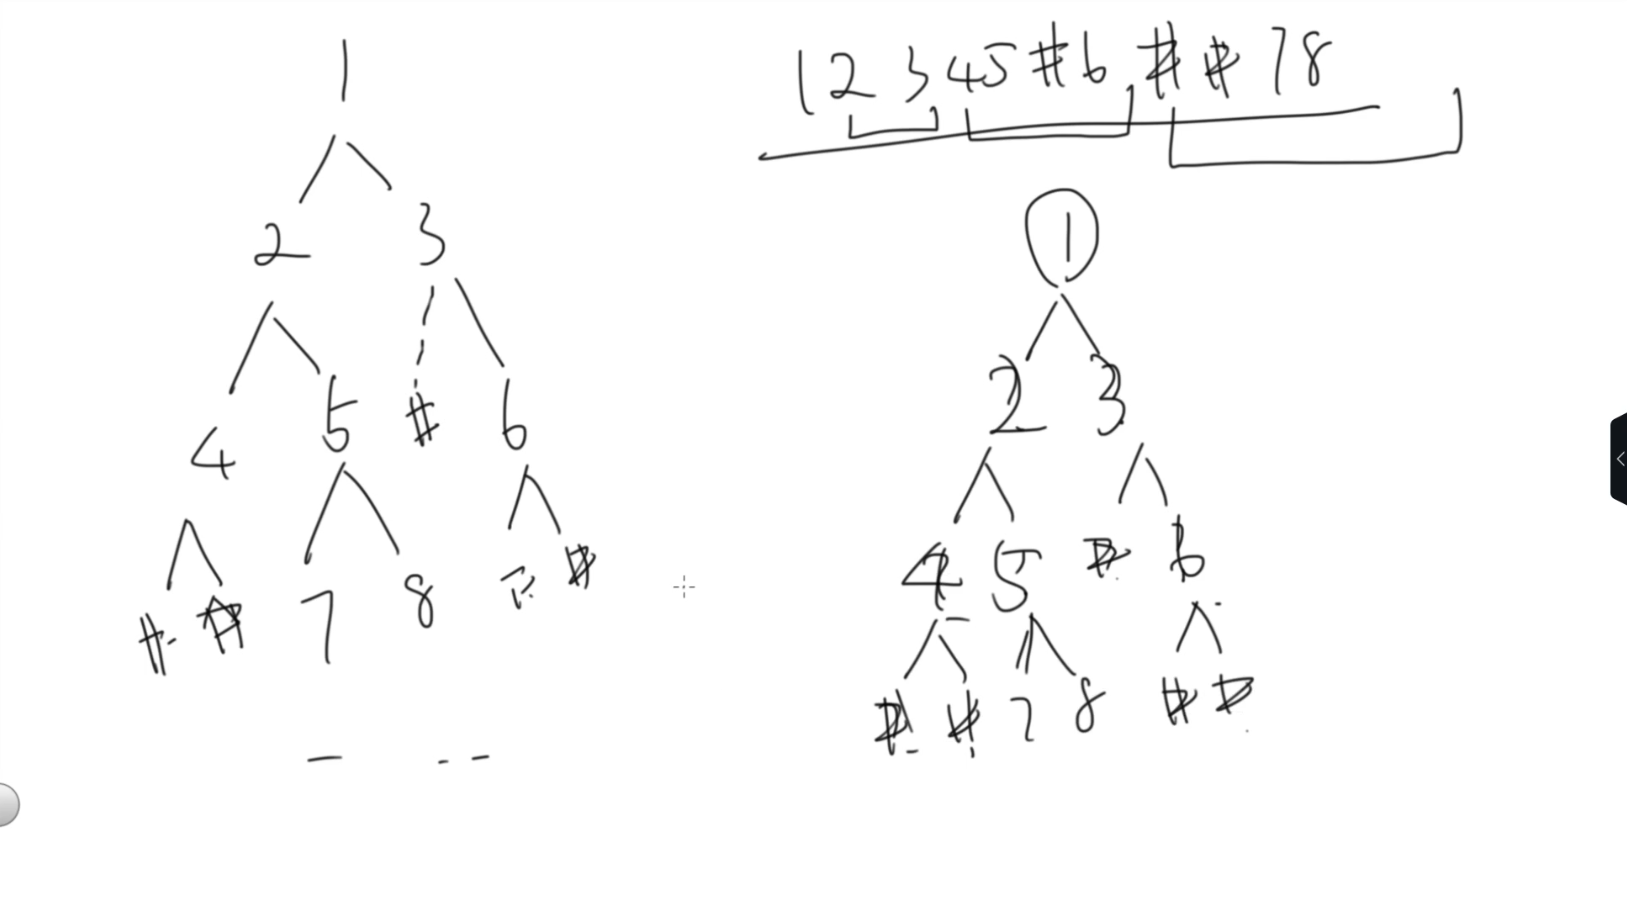 1 2 3 4 5 # 6 # # 7 8
1
2 3
4 5 # 6
# # 7 8 #
1
2 3
4 5 # 6
# # 7 8 # #